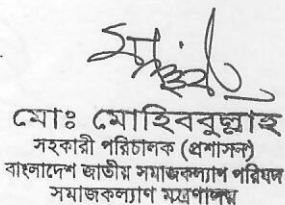 মোঃ মোহিববুল্লাহ
সহকারী পরিচালক (প্রশাসন)
বাংলাদেশ জাতীয় সমাজকল্যাণ পরিষদ
সমাজকল্যাণ মন্ত্রণালয়